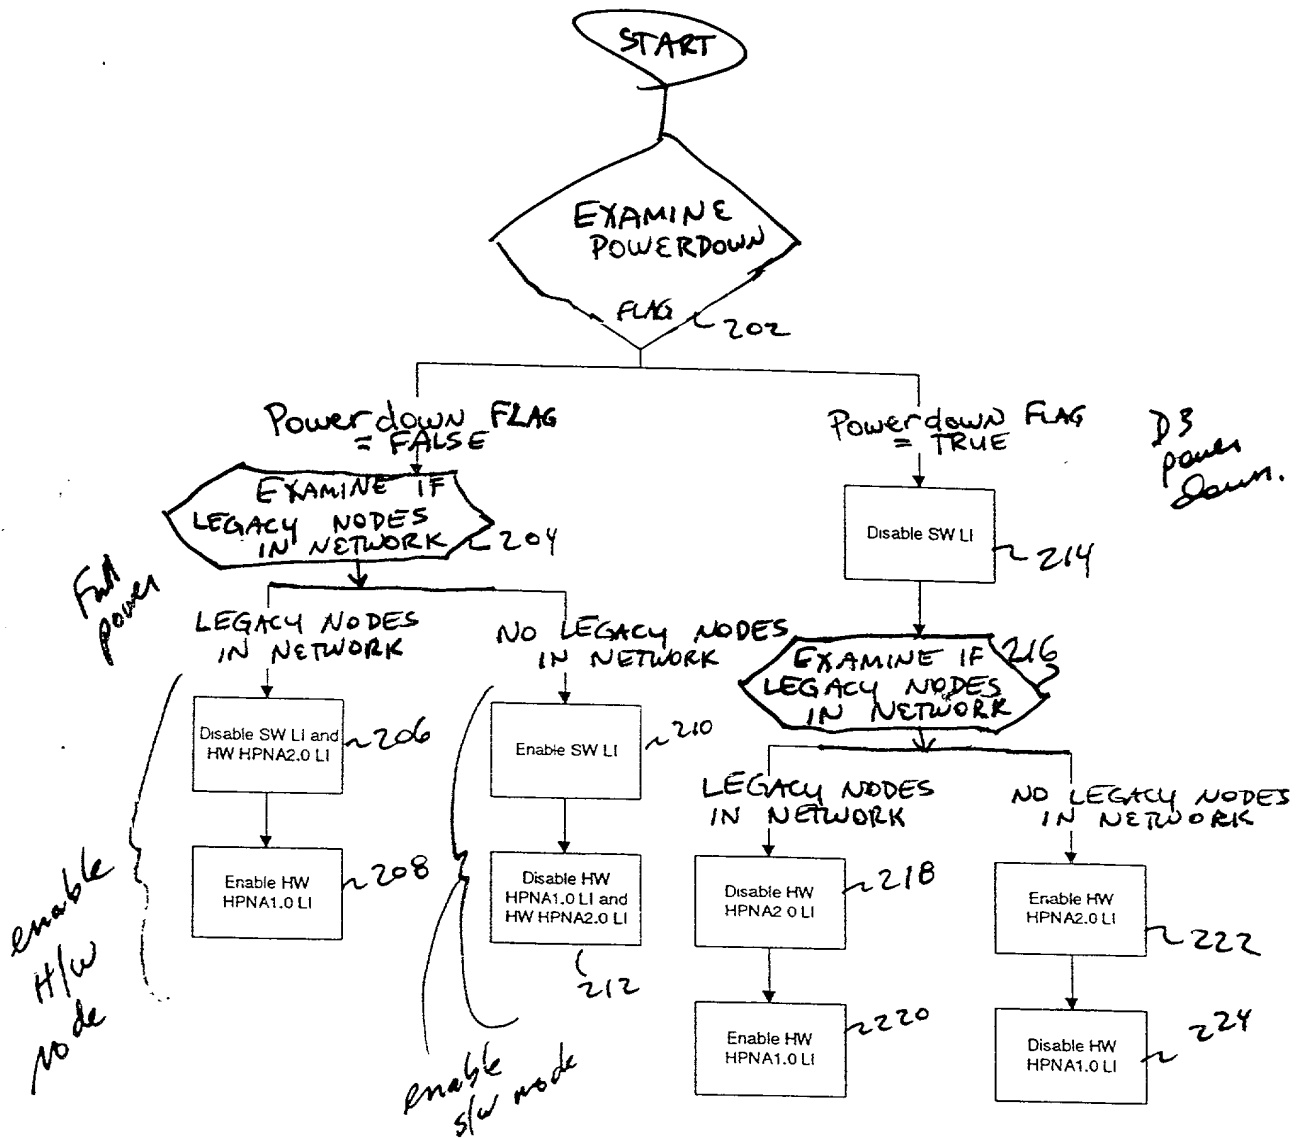 START
EXAMINE
POWERDOWN
FLAG
202
Powerdown FLAG
= FALSE
Powerdown FLAG
= TRUE
D3
power
down.
EXAMINE IF
LEGACY NODES
IN NETWORK
204
Disable SW LI
214
Full
power
LEGACY NODES
IN NETWORK
NO LEGACY NODES
IN NETWORK
EXAMINE IF
LEGACY NODES
IN NETWORK
216
Disable SW LI and
HW HPNA2.0 LI
206
Enable SW LI
210
LEGACY NODES
IN NETWORK
NO LEGACY NODES
IN NETWORK
Enable HW
HPNA1.0 LI
208
Disable HW
HPNA1.0 LI and
HW HPNA2.0 LI
212
Disable HW
HPNA2 0 LI
218
Enable HW
HPNA2.0 LI
222
enable
H/W
node
enable
s/w mode
Enable HW
HPNA1.0 LI
220
Disable HW
HPNA1.0 LI
224